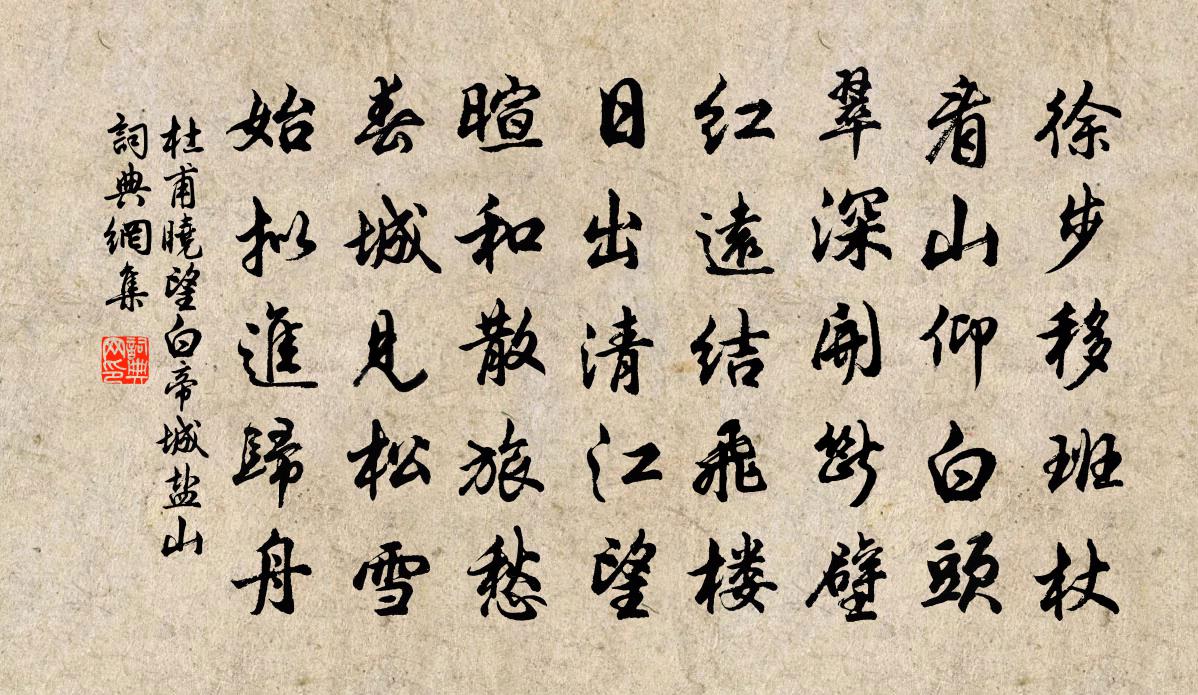 徐步移班杖
看山仰白頭
翠深開斷壁
红遠结飛楼
日出清江望
暄和散旅愁
春城見松雪
始拟進歸舟
杜甫曉望白帝城盐山
詞典網集
詞典网印